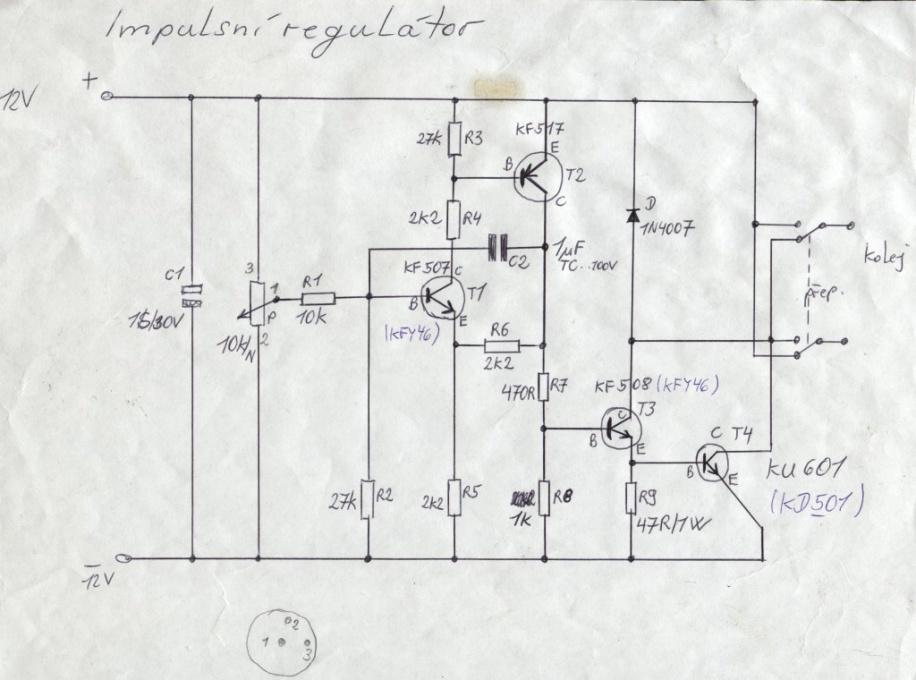 Impulsní regulátor
+
12V
KF517
27k R3
E
B
T2
C
2k2 R4
D
1N4007
1μF
TC..100V
C2
kolej
KF507 C
C1
3
R1
T1
B
1
přep.
15/30V
P
10k
E
10k/N
2
(KFY46)
R6
2k2
470R R7
KF508 (KFY46)
C T3
B
E
C T4
B
E
KU601
(KD501)
27k R2
2k2 R5
R8
1k
R9
47R/1W
-
12V
1
2
3